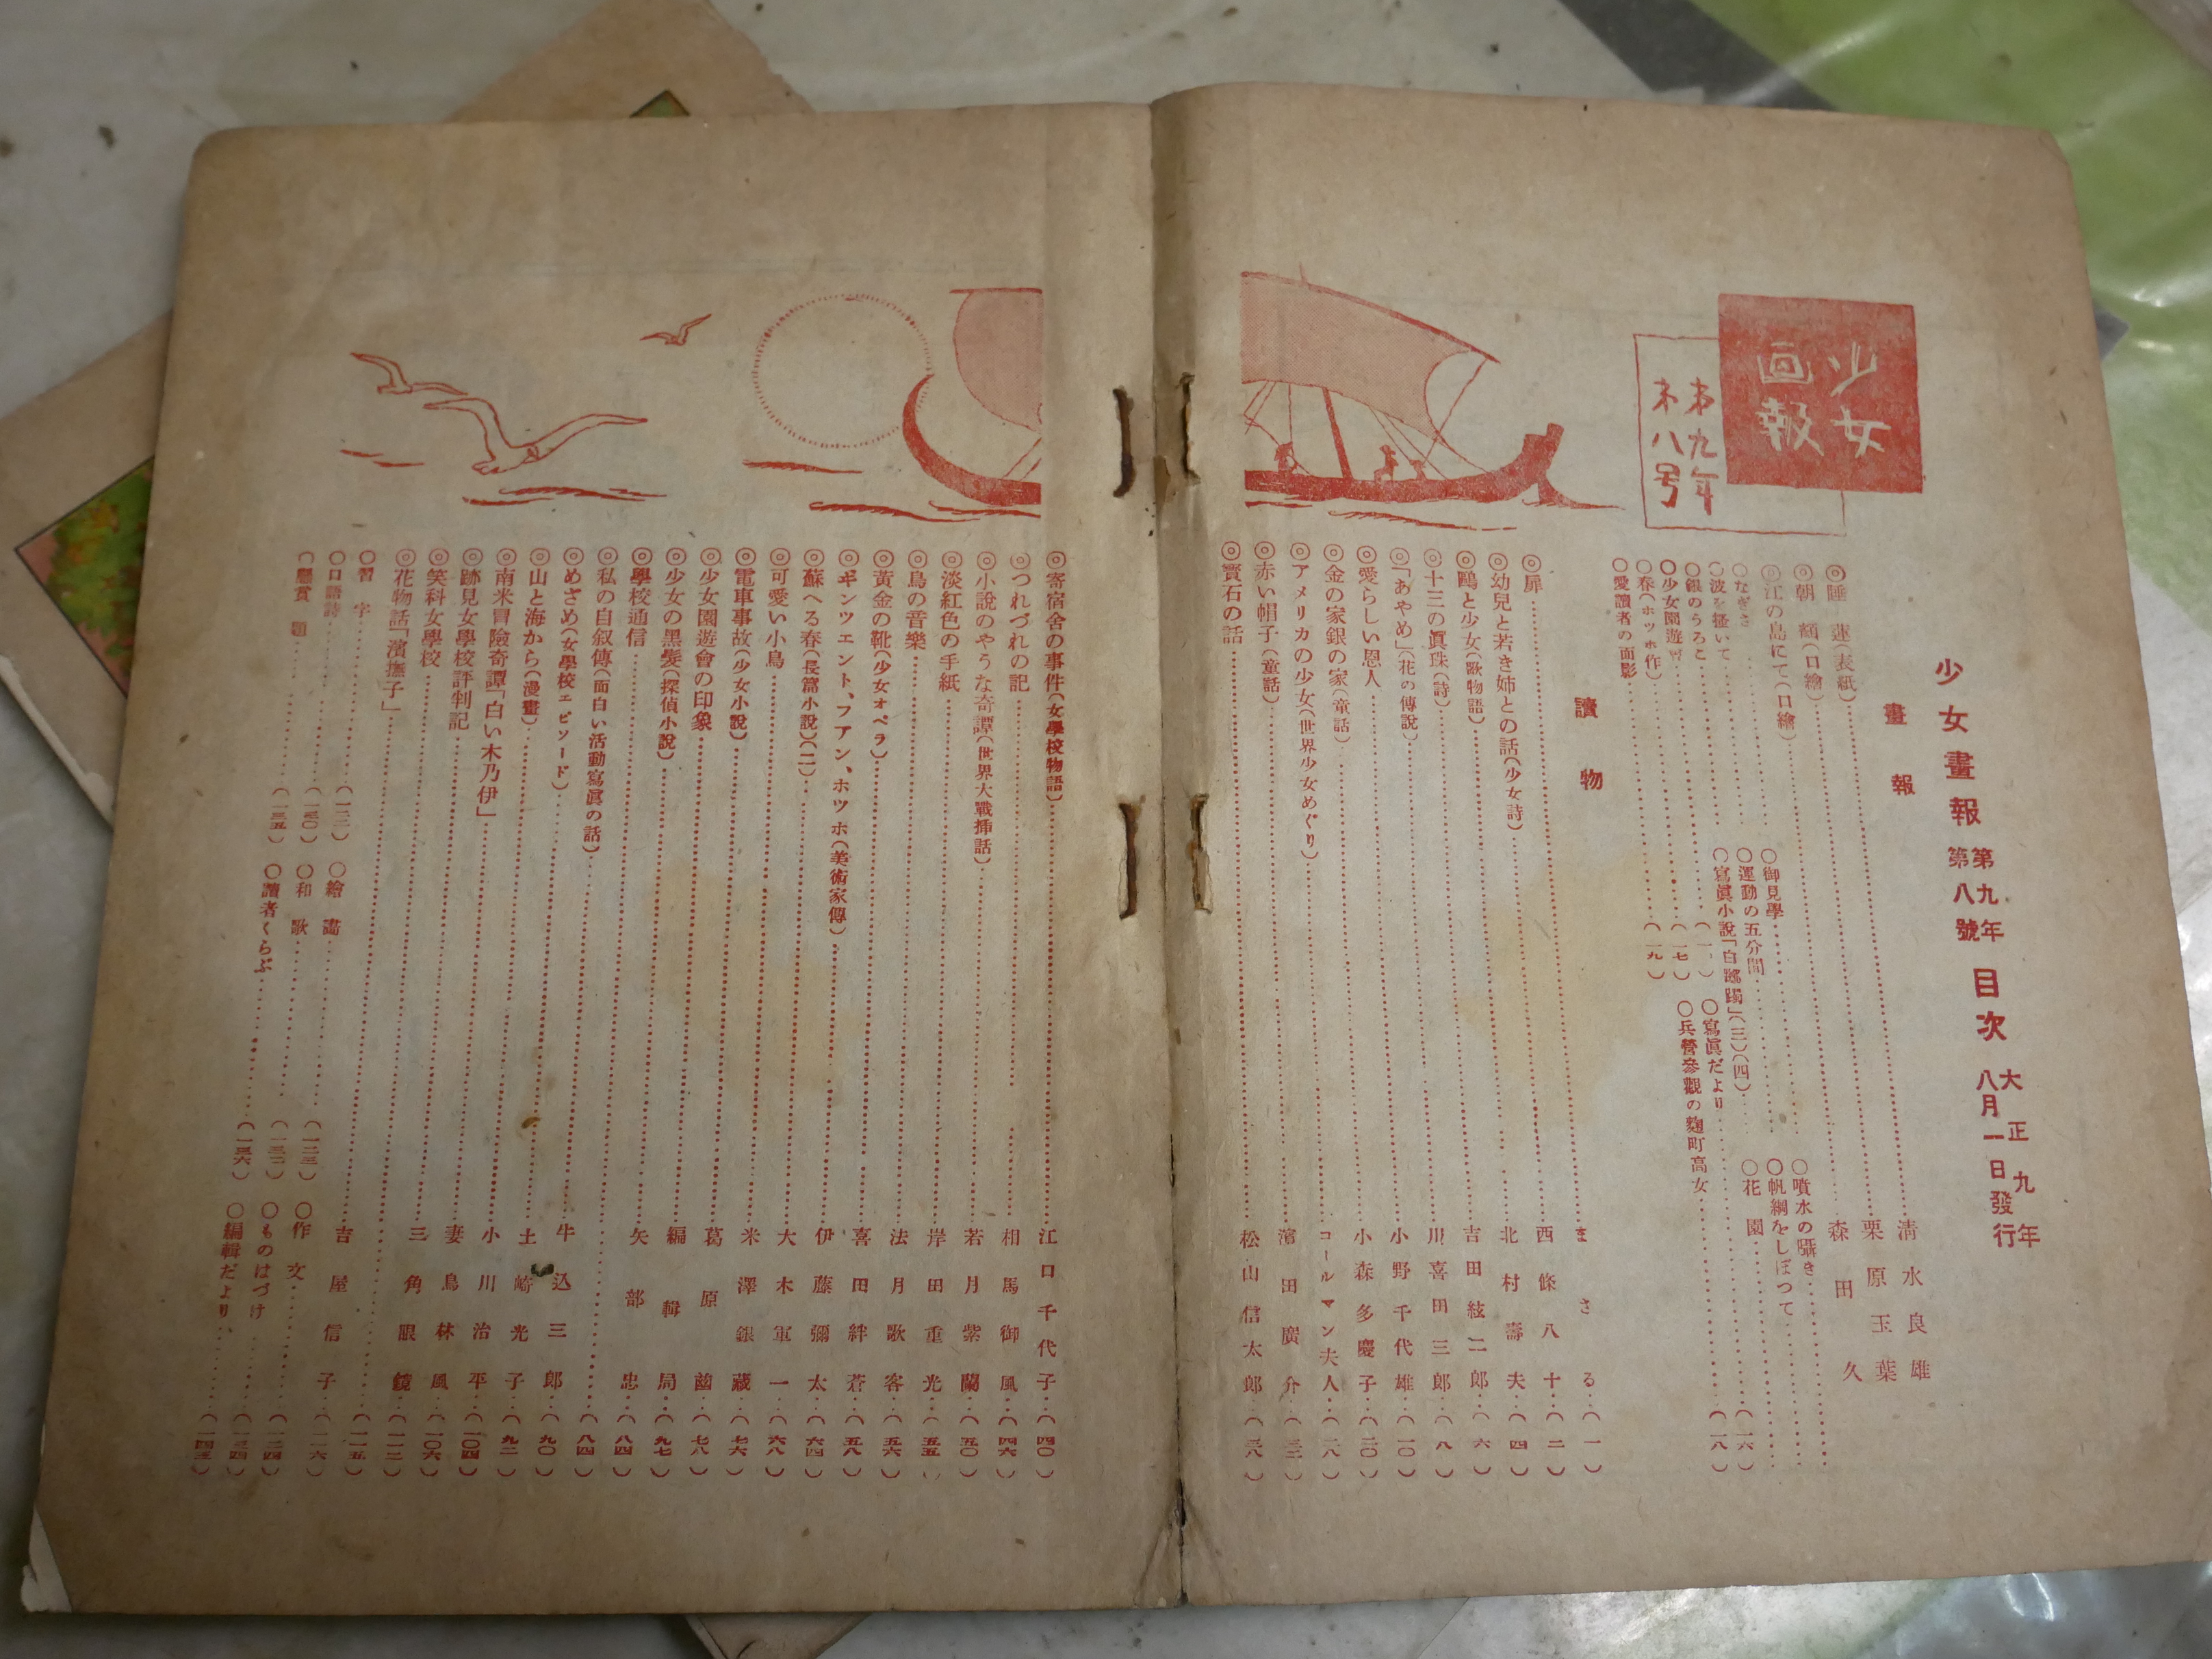 少女
画報
第九年
第八号
少女畫報 第九年 第八號 目次 大正九年 八月一日發行
畫報
◎睡蓮(表紙)……清水良雄
◎朝顔(口繪)……栗原玉葉
◎江の島にて(口繪)……森田久
○なぎさ…… ○御見學…… ○噴水の囁き……
○波を描いて…… ○運動の五分間 ○帆綱をしぼつて……
○銀のうろこ……(一) ○寫眞小說「白躑躅」(三)(四)…… ○花園……(一六)
○少女園遊會……(一七) ○寫眞だより……(一八)
○春(ホッホ作)……(一九) ○兵營參觀の麴町高女……
○愛讀者の面影……
讀物
◎扉……まさる…(一)
◎幼兒と若き姉との話(少女詩)……西條八十…(二)
◎鷗と少女(歌物語)……北村壽夫…(四)
◎十三の眞珠(詩)……吉田絃二郎…(六)
◎「あやめ」(花の傳說)……川喜田三郎…(八)
◎愛らしい恩人……小野千代雄…(一〇)
◎金の家銀の家(童話)……小森多慶子…(二〇)
◎アメリカの少女(世界少女めぐり)……コールマン夫人…(二八)
◎赤い帽子(童話)……濱田廣介…(三二)
◎寶石の話……松山信太郎…(三八)
◎寄宿舍の事件(女學校物語)……江口千代子…(四〇)
◎つれづれの記……相馬御風…(四六)
◎小說のやうな奇譚(世界大戰揷話)……若月紫蘭…(五〇)
◎淡紅色の手紙……岸田重光…(五五)
◎鳥の音樂……法月歌客…(五六)
◎黃金の靴(少女オペラ)……喜田絆蒼…(五八)
◎ギンツエント、フアン、ホツホ(美術家傳)……伊藤彌太…(六四)
◎蘇へる春(長篇小說)(二)……大木軍一…(六八)
◎可愛い小鳥……米澤銀藏…(七六)
◎電車事故(少女小說)……葛原𦿶…(七八)
◎少女園遊會の印象……編輯局…(九七)
◎少女の黑髮(探偵小說)……矢部忠…(八四)
◎學校通信……(八四)
◎私の自叙傳(面白い活動寫眞の話)……牛込三郎…(九〇)
◎めざめ(女學校エピソード)……土崎光子…(九二)
◎山と海から(漫畫)……小川治平…(一〇四)
◎南米冒險奇譚「白い木乃伊」……妻鳥林風…(一〇六)
◎跡見女學校評判記……三角眼鏡…(一一二)
◎笑科女學校……(一一五)
◎花物話「濱撫子」……吉屋信子…(一一六)
◎習字……(一二二) ○繪畵……(一二三) ○作文……(一二四)
○口語詩……(一三〇) ○和歌……(一三二) ○ものはづけ……(一三四)
○懸賞題……(一三五) ○讀者くらぶ……(一三六) ○編輯だより……(一四三)